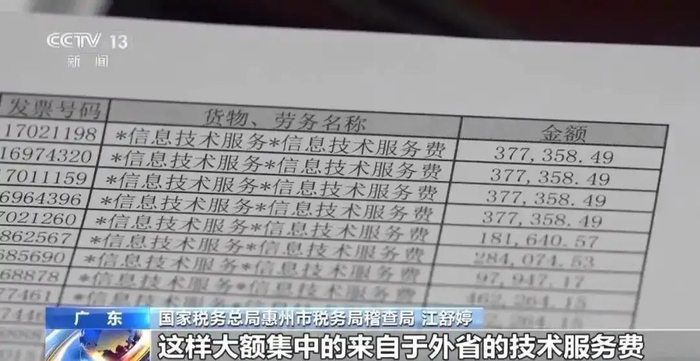 CCTV 13
新闻
发票号码 货物、劳务名称 金额
17021198 *信息技术服务*信息技术服务费 377,358.49
16974320 *信息技术服务*信息技术服务费 377,358.49
17011159 *信息技术服务*信息技术服务费 377,358.49
6964396 *信息技术服务*信息技术服务费 377,358.49
7021260 *信息技术服务*信息技术服务费 377,358.49
862567 *信息技术服务*信息技术服务费 181,640.57
685690 *信息技术服务*信息技术服务费 284,074.53
68878 *信息技术服务*信息技术服务费 97,947.17
77461 *信息技术服务*信息技术服务费 462,264.15
广东 国家税务总局惠州市税务局稽查局 江舒婷
这样大额集中的来自于外省的技术服务费